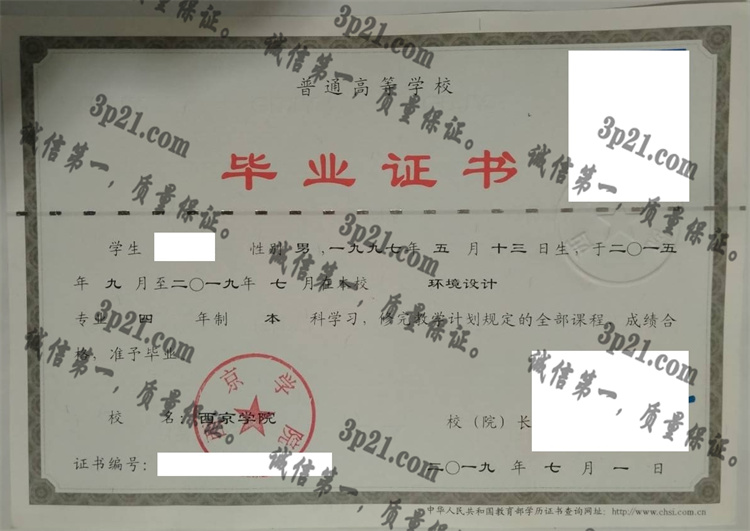 普通高等学校
毕业证书
学生 性别 男 ,一九九七年 五 月 十三 日生,于二〇一五
年 九 月至二〇一九年 七 月在本校 环境设计
专业 四 年制 本 科学习,修完教学计划规定的全部课程,成绩合
格,准予毕业
校 名:西京学院
校(院)长
证书编号:
二〇一九 年 七 月 一 日
中华人民共和国教育部学历证书查询网址: http://www.chsi.com.cn
京学院
3p21.com
诚信第一,质量保证。
3p21.com
诚信第一,质量保证。
3p21.com
诚信第一,质量保证。
3p21.com
诚信第一,质量保证。
3p21.com
诚信第一,质量保证。
3p21.com
诚信第一,质量保证。
3p21.com
诚信第一,质量保证。
3p21.com
诚信第一,质量保证。